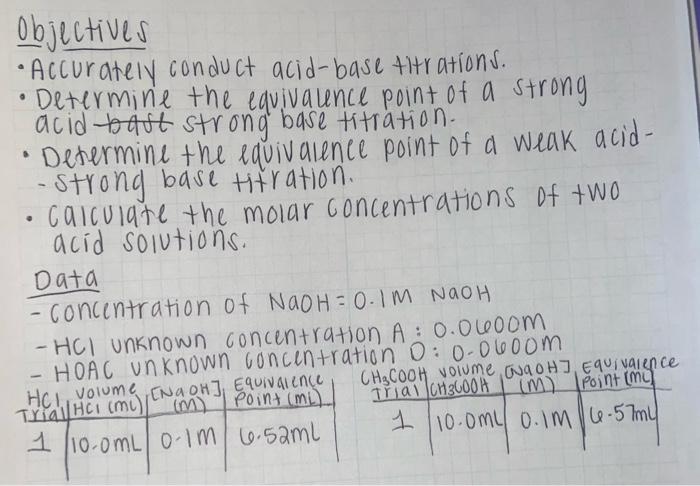 Objectives
• Accurately conduct acid-base titrations.
• Determine the equivalence point of a strong
acid strong base titration.
• Determine the equivalence point of a weak acid-
- strong base titration.
• Calculate the molar concentrations of two
acid solutions.
Data
- Concentration of NaOH = 0.1M NaOH
- HCl unknown concentration A: 0.0600M
- HOAC unknown concentration D: 0.0600M
HCl Trial | Volume HCl (mL) | [NaOH] (M) | Equivalence Point (mL)
1 | 10.0mL | 0.1M | 6.52mL
CH₃COOH Trial | Volume CH₃COOH | [NaOH] (M) | Equivalence Point (mL)
1 | 10.0mL | 0.1M | 6.57mL